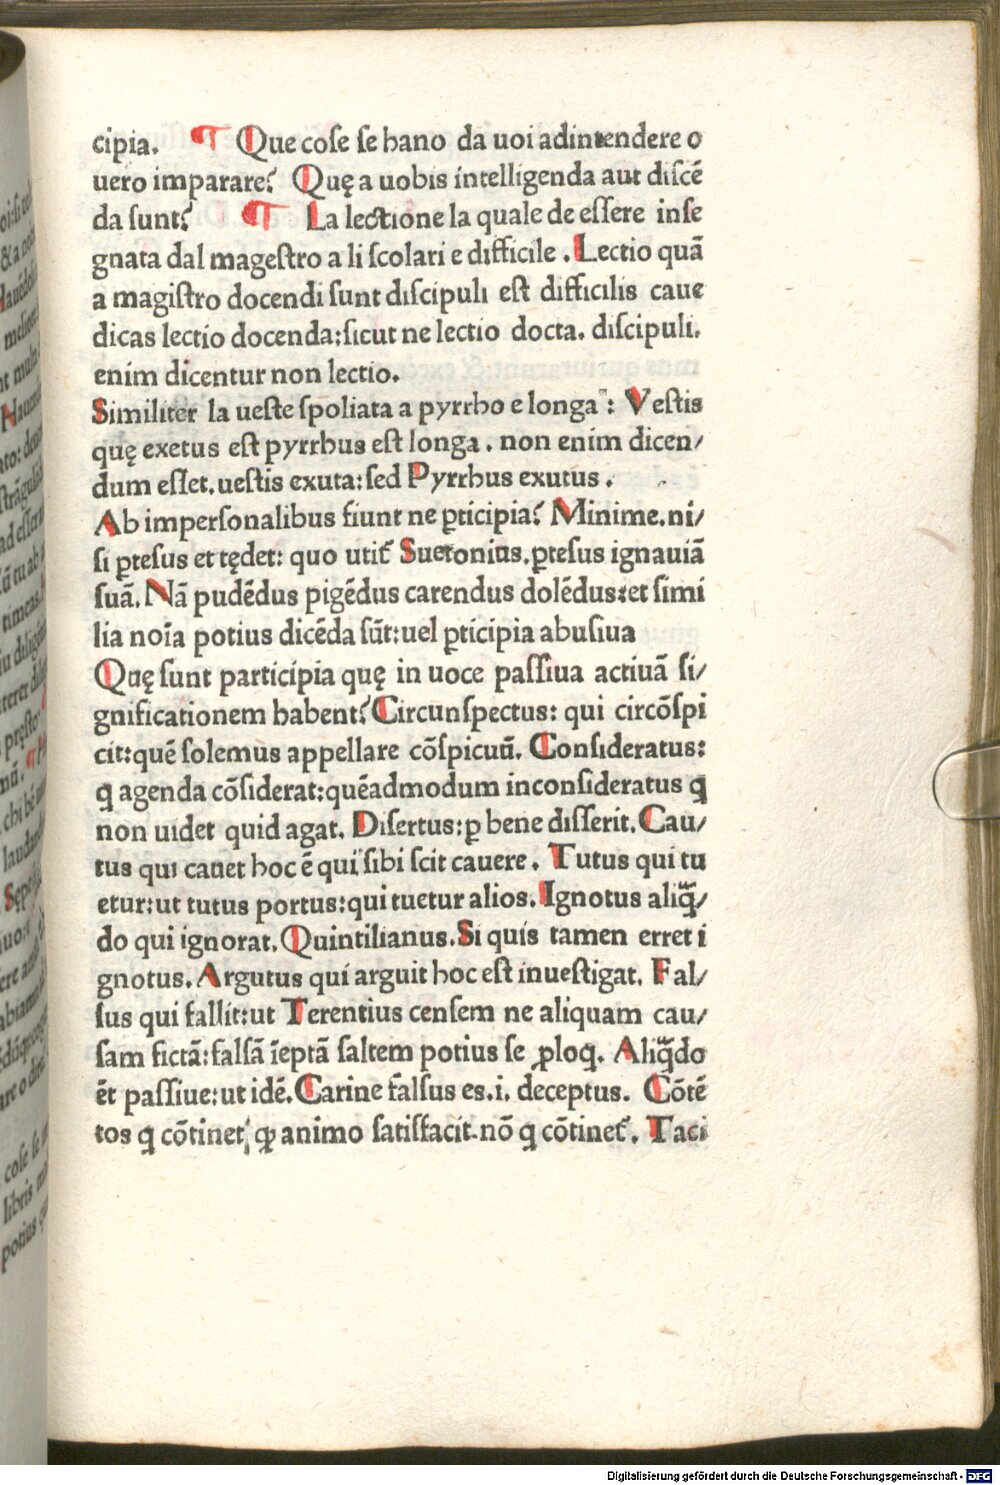 cipia. ¶ Que coſe ſe hano da uoi adintendere o
uero imparare? Quę a uobis intelligenda aut diſcē
da ſunt? ¶ La lectione la quale de eſſere inſe
gnata dal mageſtro a li ſcolari e difficile . Lectio quā
a magiſtro docendi ſunt diſcipuli eſt difficilis caue
dicas lectio docenda: ſicut ne lectio docta. diſcipuli.
enim dicentur non lectio.
Similiter la ueſte ſpoliata a pyrrho e longa : Veſtis
quę exetus eſt pyrrhus eſt longa . non enim dicen/
dum eſſet. ueſtis exuta: ſed Pyrrhus exutus .
Ab imperſonalibus fiunt ne ꝑticipia? Minime. ni/
ſi ꝑteſus et tędet: quo utit᷑ Suetonius. ꝑteſus ignauiā
ſuā. Nā pudēdus pigēdus carendus dolēdus: et ſimi
lia noīa potius dicēda ſūt: uel ꝑticipia abuſiua
Quę ſunt participia quę in uoce paſſiua actiuā ſi/
gnificationem habent? Circunſpectus: qui circōſpi
cit: quē ſolemus appellare cōſpicuū. Conſideratus:
q agenda cōſiderat: quēadmodum inconſideratus q
non uidet quid agat. Diſertus: ꝑ bene diſſerit. Cau/
tus qui cauet hoc ē qui ſibi ſcit cauere . Tutus qui tu
etur: ut tutus portus: qui tuetur alios. Ignotus aliq̄/
do qui ignorat. Quintilianus. Si quis tamen erret i
gnotus. Argutus qui arguit hoc eſt inueſtigat. Fal/
ſus qui fallit: ut Terentius cenſem ne aliquam cau/
ſam fictā: falſā īeptā ſaltem potius ſe ꝓloq. Aliq̄do
ēt paſſiue: ut idē. Carine falſus es .i. deceptus. Cōtē
tos q cōtinet᷑ ꝙ animo ſatiſfacit. nō q cōtinet᷑. Taci
Digitalisierung gefördert durch die Deutsche Forschungsgemeinschaft - DFG